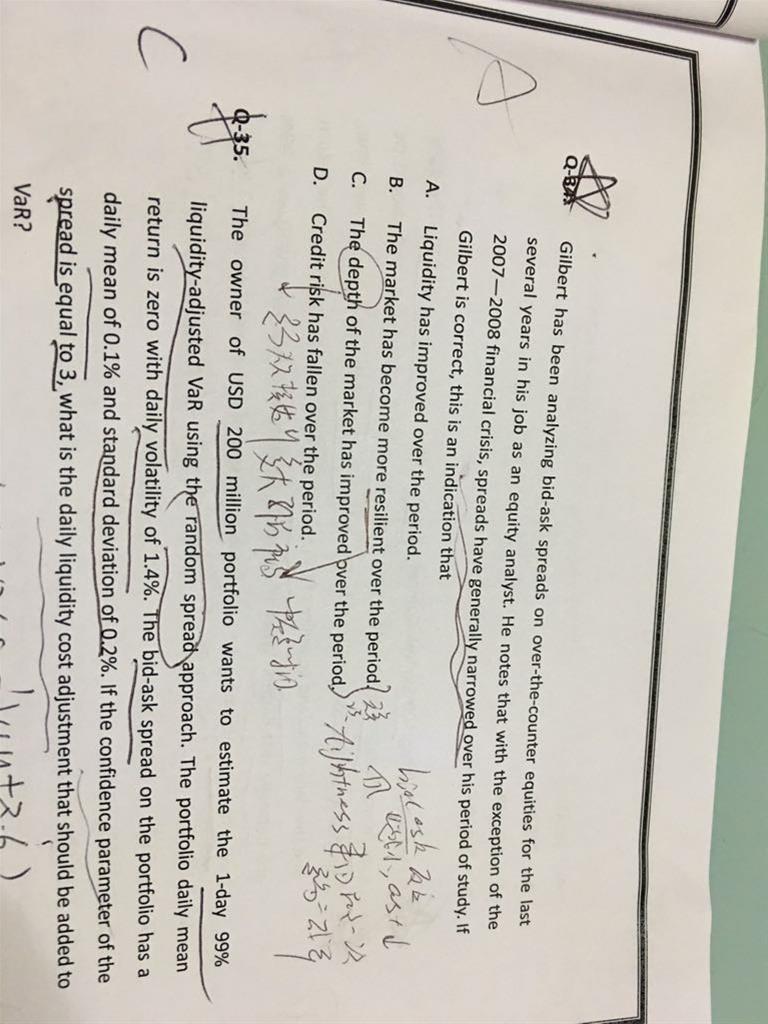 A
Q-34.
Gilbert has been analyzing bid-ask spreads on over-the-counter equities for the last
several years in his job as an equity analyst. He notes that with the exception of the
2007—2008 financial crisis, spreads have generally narrowed over his period of study. If
Gilbert is correct, this is an indication that
A. Liquidity has improved over the period.
B. The market has become more resilient over the period.
C. The depth of the market has improved over the period.
D. Credit risk has fallen over the period.
bid ask
tightness
C
Q-35.
The owner of USD 200 million portfolio wants to estimate the 1-day 99%
liquidity-adjusted VaR using the random spread approach. The portfolio daily mean
return is zero with daily volatility of 1.4%. The bid-ask spread on the portfolio has a
daily mean of 0.1% and standard deviation of 0.2%. If the confidence parameter of the
spread is equal to 3, what is the daily liquidity cost adjustment that should be added to
VaR?